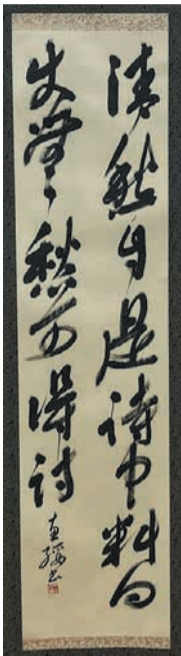 清愁自是詩中料向
使無愁可得詩